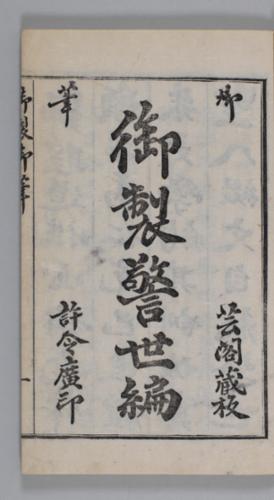 御
芸閣藏板
御製警世編
筆
許令廣印
御製御筆
一